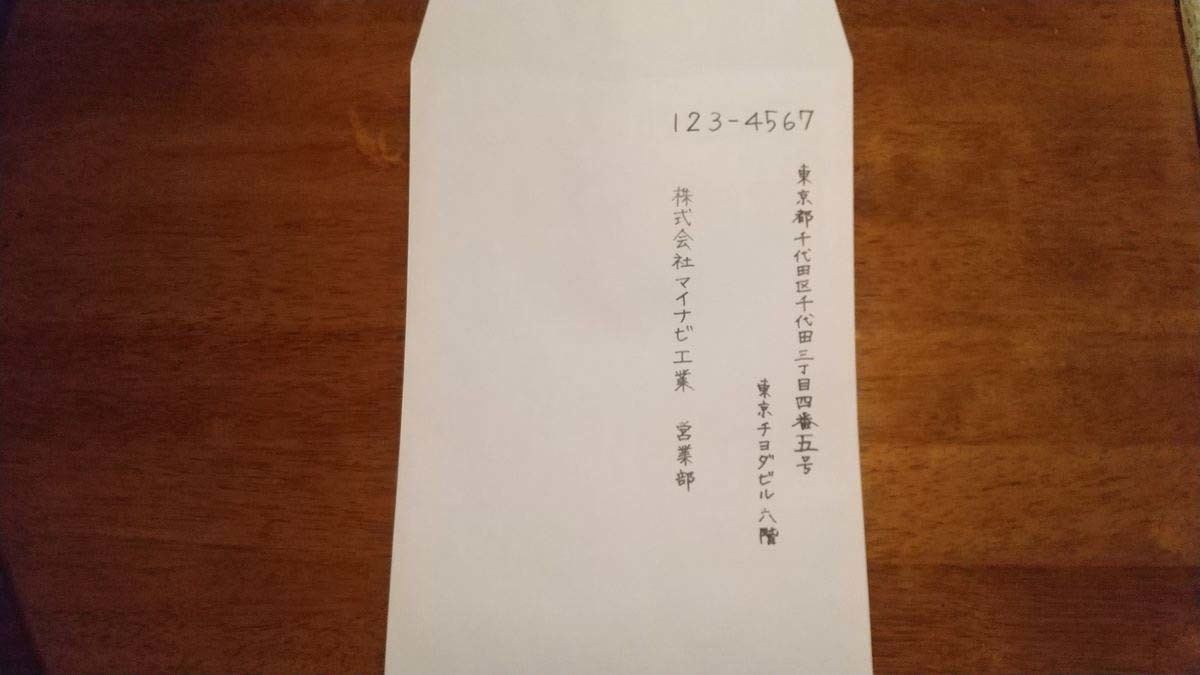 123-4567
東京都千代田区千代田三丁目四番五号
東京チヨダビル六階
株式会社マイナビ工業 営業部